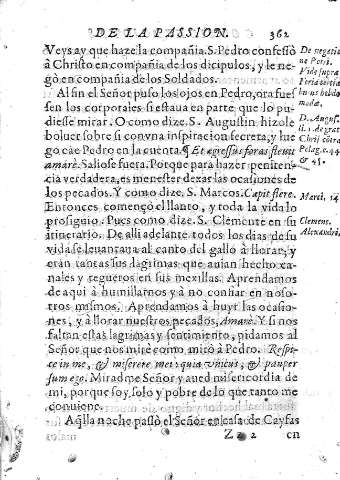 DE LA PASSION. 362
Veys ay que haze la compañia. S. Pedro confessò
à Christo en compañia de los dicipulos, y le ne-
gò en compañia de los Soldados.
Al fin el Señor puso los ojos en Pedro, ora fues
sen los corporales si estaua en parte que lo pu-
diesse mirar. O como dize. S. Augustin hizole
boluer sobre si con vna inspiracion secreta, y lue
go cae Pedro en la cuenta ¶ Et egressus foras fleuit
amarè. Saliose fuera. Porque para hazer peniten-
cia verdadera, es menester dexar las ocasiones de
los pecados. Y como dize. S. Marcos. Cæpit flere.
Entonces començò el llanto, y toda la vida lo
prosiguio. Pues como dize. S. Clemente en su
itinerario. De alli adelante todos los dias de su
vida se leuantaua al canto del gallo à llorar, y
eran tantas sus lagrimas que auian hecho ca-
nales y regueros en sus mexillas. Aprendamos
de aqui à humillarnos y à no confiar en noso-
tros mismos. Aprendamos à huyr las ocasio-
nes, y à llorar nuestros pecados, Amarè. Y si nos
faltan estas lagrimas y sentimiento, pidamos al
Señor que nos mire como mirò à Pedro. Respi-
ce in me, & miserere mei: quia vnicus, & pauper
sum ego. Miradme Señor y aued misericordia de
mi, porque soy solo y pobre de lo que tanto me
conuiene.
Aq̃lla noche passò el Señor en casa de Cayfas
Zz 2 en
De negatio
ne Petri.
Vide supra
Feria tertia
D. Augus.
Pelag. c. 44
& 45.
Marci. 14
Clemens.
Alexandri.